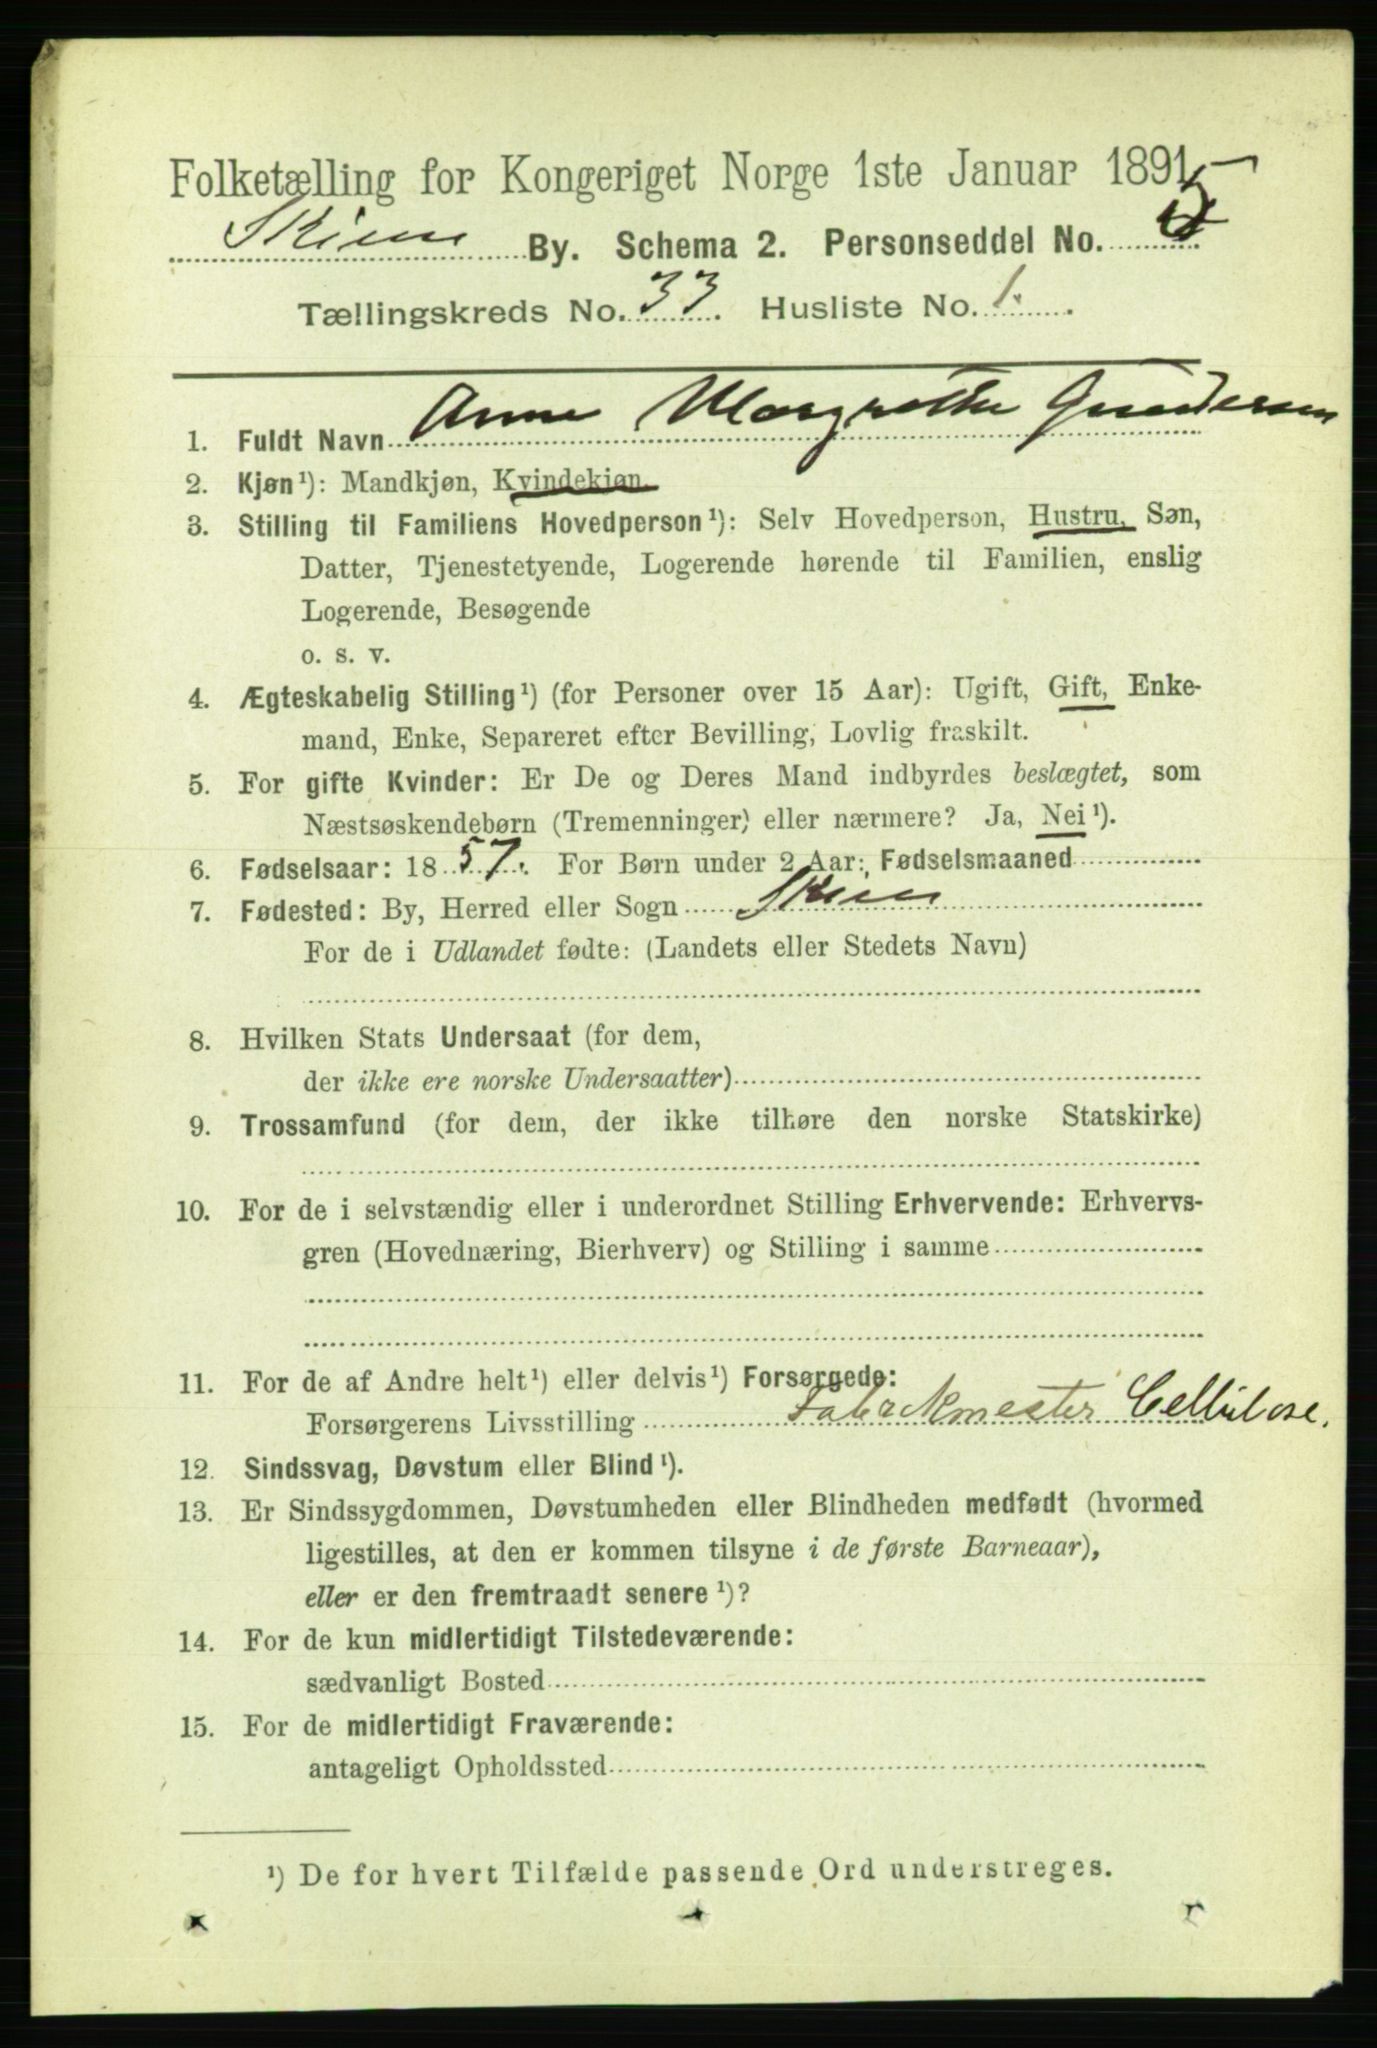 Folketælling for Kongeriget Norge 1ste Januar 1891
Skien By. Schema 2. Personseddel No. 5
Tællingskreds No. 33. Husliste No. 1.
1. Fuldt Navn Anne Margrethe Gundersen
2. Kjøn¹): Mandkjøn, Kvindekjøn.
3. Stilling til Familiens Hovedperson¹): Selv Hovedperson, Hustru, Søn,
Datter, Tjenestetyende, Logerende hørende til Familien, enslig
Logerende, Besøgende
o. s. v.
4. Ægteskabelig Stilling¹) (for Personer over 15 Aar): Ugift, Gift, Enke-
mand, Enke, Separeret efter Bevilling, Lovlig fraskilt.
5. For gifte Kvinder: Er De og Deres Mand indbyrdes beslægtet, som
Næstsøskendebørn (Tremenninger) eller nærmere? Ja, Nei¹).
6. Fødselsaar: 1857. For Børn under 2 Aar: Fødselsmaaned
7. Fødested: By, Herred eller Sogn Skien
For de i Udlandet fødte: (Landets eller Stedets Navn)
8. Hvilken Stats Undersaat (for dem,
der ikke ere norske Undersaatter)
9. Trossamfund (for dem, der ikke tilhøre den norske Statskirke)
10. For de i selvstændig eller i underordnet Stilling Erhvervende: Erhvervs-
gren (Hovednæring, Bierhverv) og Stilling i samme
11. For de af Andre helt¹) eller delvis¹) Forsørgede:
Forsørgerens Livsstilling Fabrikmester Cellulose.
12. Sindssvag, Døvstum eller Blind¹).
13. Er Sindssygdommen, Døvstumheden eller Blindheden medfødt (hvormed
ligestilles, at den er kommen tilsyne i de første Barneaar),
eller er den fremtraadt senere¹)?
14. For de kun midlertidigt Tilstedeværende:
sædvanligt Bosted
15. For de midlertidigt Fraværende:
antageligt Opholdssted
¹) De for hvert Tilfælde passende Ord understreges.